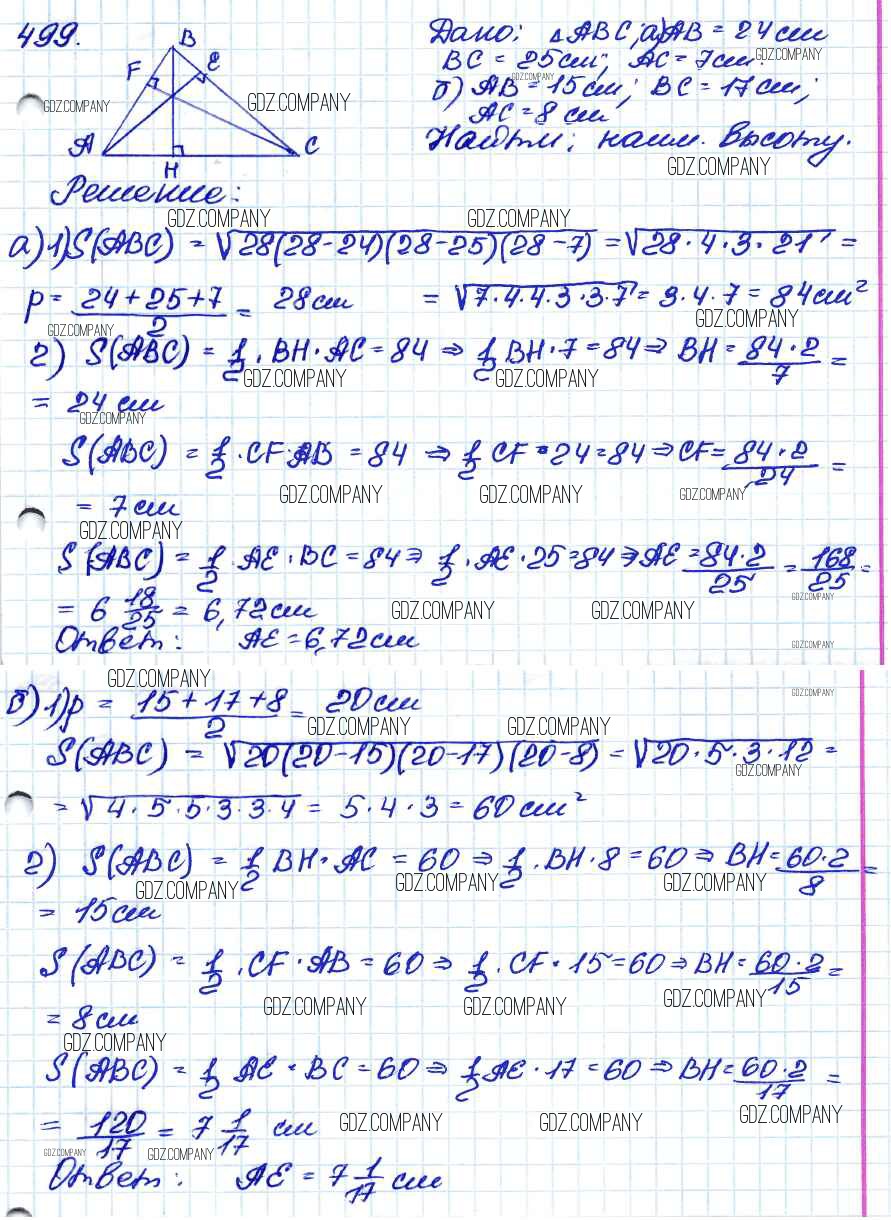 499.
B
F
E
A
H
C
Дано: △ABC, а) AB = 24см
BC = 25см; AC = 7см.
б) AB = 15см; BC = 17см;
AC = 8 см
Найти: наим. высоту.
GDZ.COMPANY
Решение:
GDZ.COMPANY GDZ.COMPANY
а) 1) S(ABC) = √28(28-24)(28-25)(28-7) = √28·4·3·21 =
p = (24+25+7)/2 = 28см = √7·4·4·3·3·7 = 3·4·7 = 84см²
GDZ.COMPANY GDZ.COMPANY
2) S(ABC) = 1/2 · BH · AC = 84 ⇒ 1/2 BH · 7 = 84 ⇒ BH = 84·2/7 =
GDZ.COMPANY GDZ.COMPANY
= 24 см
GDZ.COMPANY
S(ABC) = 1/2 · CF · AB = 84 ⇒ 1/2 CF · 24 = 84 ⇒ CF = 84·2/24 =
GDZ.COMPANY GDZ.COMPANY GDZ.COMPANY
= 7 см
GDZ.COMPANY
S(ABC) = 1/2 AE · BC = 84 ⇒ 1/2 · AE · 25 = 84 ⇒ AE = 84·2/25 = 168/25 =
= 6 18/25 = 6,72см GDZ.COMPANY GDZ.COMPANY GDZ.COMPANY
Ответ: AE = 6,72см GDZ.COMPANY
GDZ.COMPANY GDZ.COMPANY
б) 1) p = (15+17+8)/2 = 20см
GDZ.COMPANY GDZ.COMPANY
S(ABC) = √20(20-15)(20-17)(20-8) = √20·5·3·12 =
GDZ.COMPANY
= √4·5·5·3·3·4 = 5·4·3 = 60см²
2) S(ABC) = 1/2 BH · AC = 60 ⇒ 1/2 · BH · 8 = 60 ⇒ BH = 60·2/8 =
GDZ.COMPANY GDZ.COMPANY GDZ.COMPANY
= 15см
S(ABC) = 1/2 · CF · AB = 60 ⇒ 1/2 · CF · 15 = 60 ⇒ BH = 60·2/15 =
GDZ.COMPANY GDZ.COMPANY GDZ.COMPANY
= 8см
GDZ.COMPANY
S(ABC) = 1/2 AE · BC = 60 ⇒ 1/2 AE · 17 = 60 ⇒ BH = 60·2/17 =
= 120/17 = 7 1/17 см GDZ.COMPANY GDZ.COMPANY GDZ.COMPANY
GDZ.COMPANY GDZ.COMPANY
Ответ: AE = 7 1/17 см